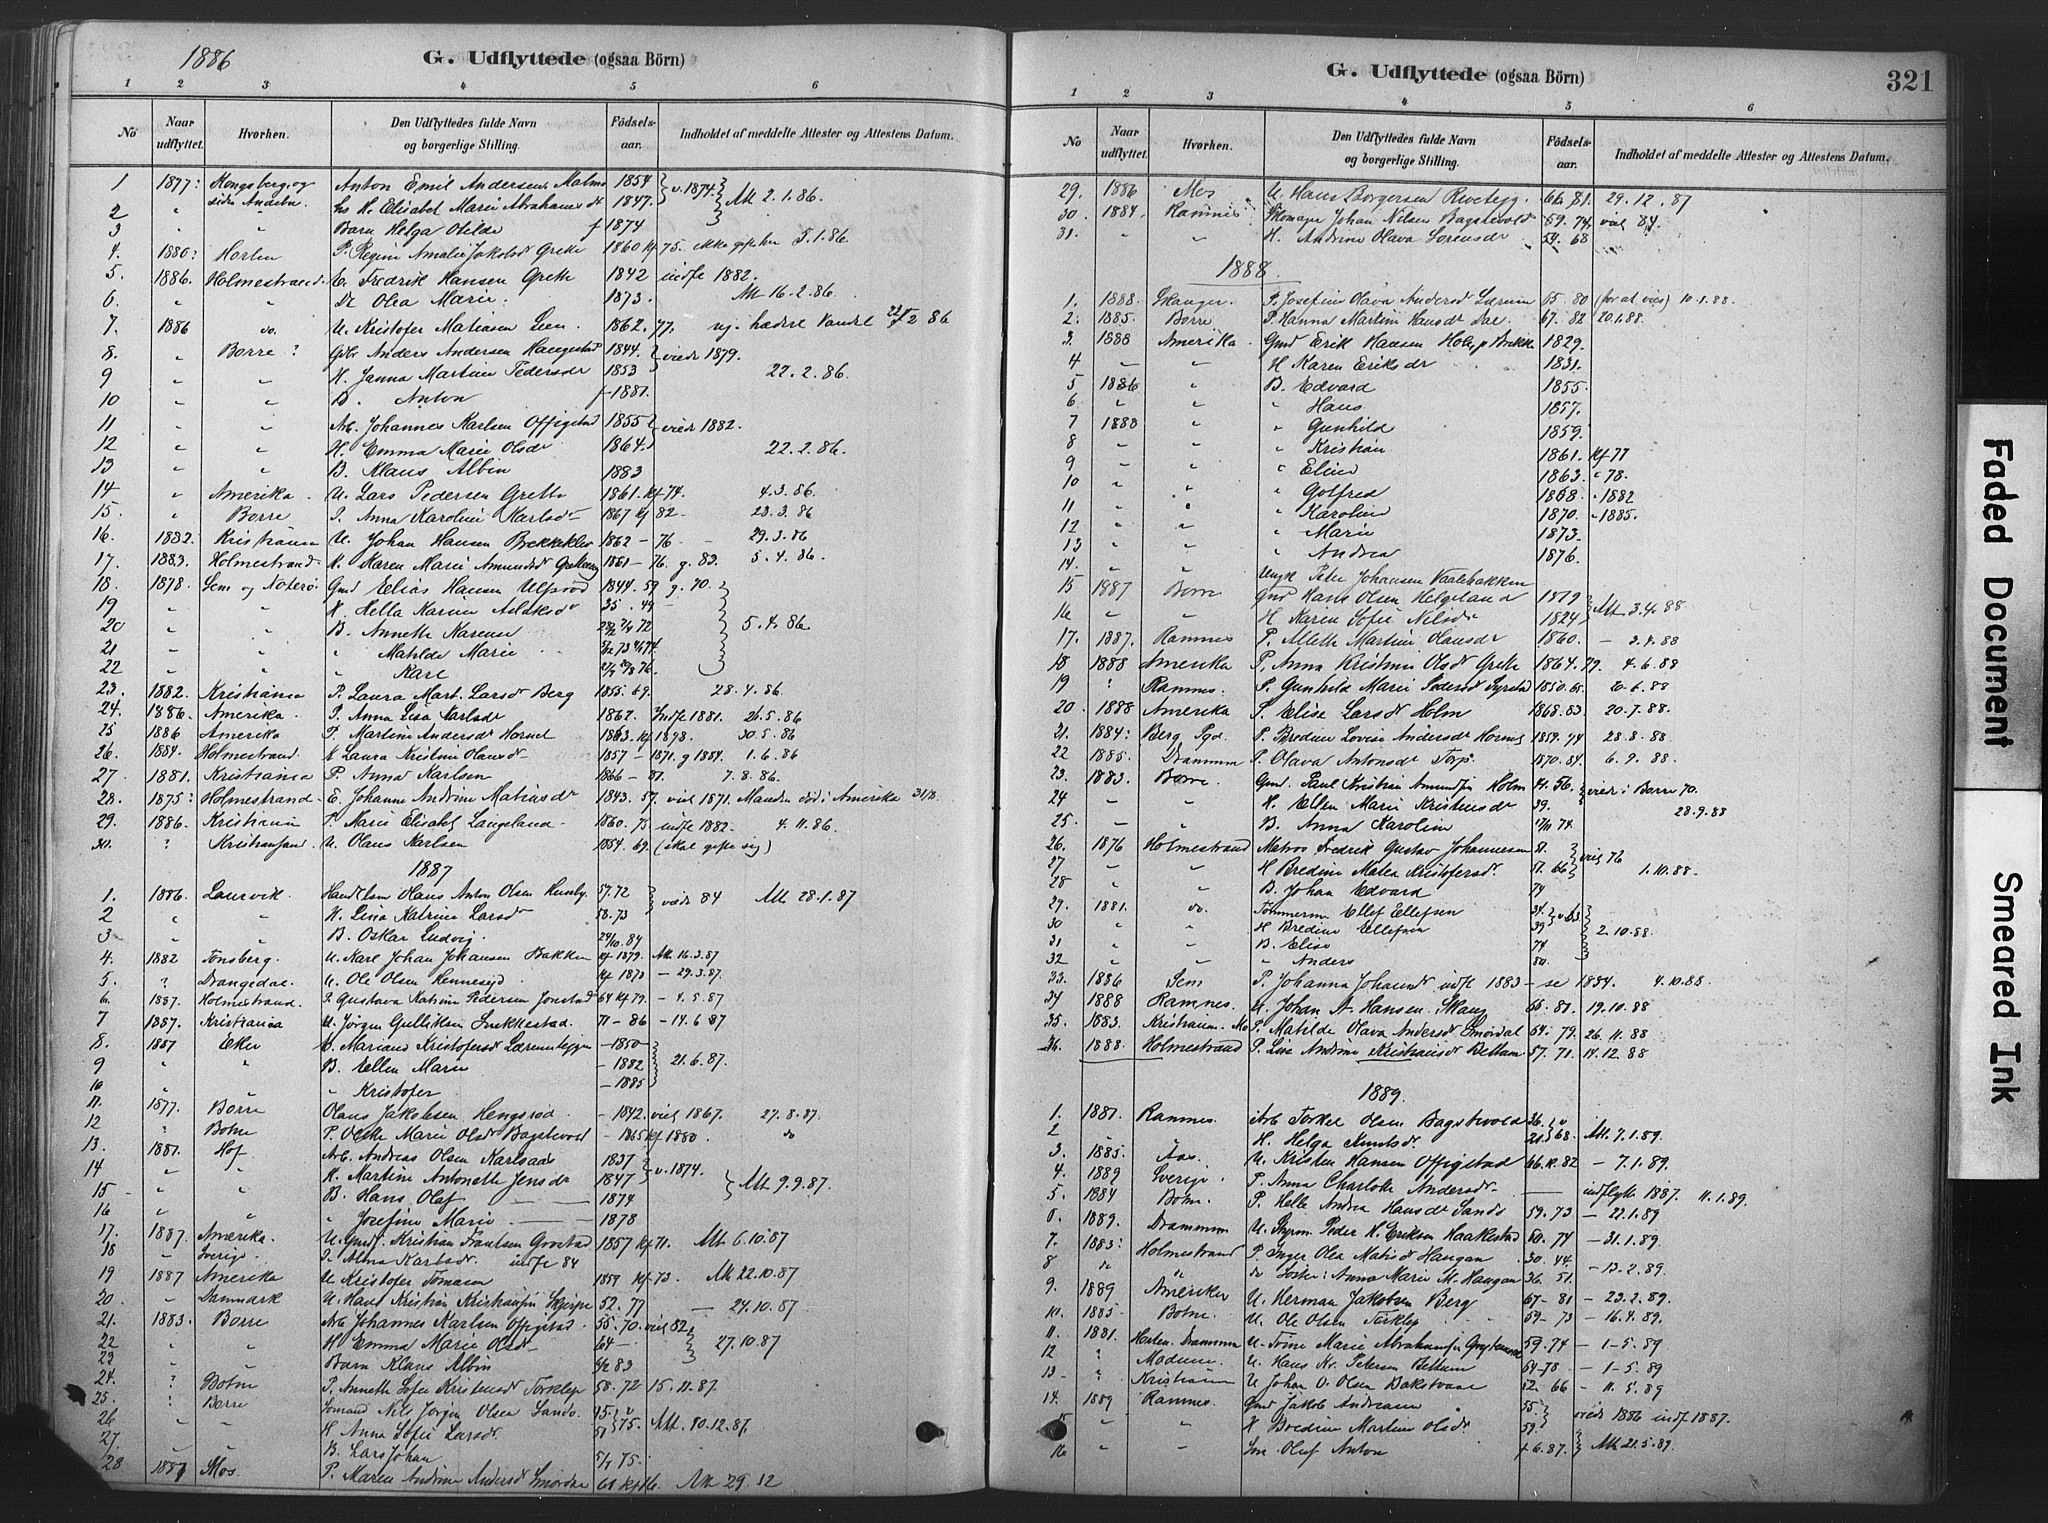 1886
G. Udflyttede (ogsaa Börn)
1 2 3 4 5 6
No
Naar udflyttet.
Hvorhen.
Den Udflyttedes fulde Navn og borgerlige Stilling.
Födsels-aar.
Indholdet af meddelte Attester og Attestens Datum.
1 1877: Kongsberg og Anton Emil Andersen 1854 v. 1874. Att 2.1.86.
2 " Elisabet Marie Abrahamsdr 1847.
3 " " Barn Helga Otilde f 1874
4. 1880: Horten P. Regine Amalie Jakobsd Grette 1860 kf 75. ikke gift 5.1.86.
5. 1886. Holmestrand. E. Fredrik Hansen Grette 1842 indfl 1882.
6. " " Olea Marie. 1873. Att 16.2.86.
7. 1886 do. U. Kristofer Matiasen 1862. 77. 2 86
8. " Borre ? Anders Andersen Haugestad 1844. viede 1879.
9 " " H. Janna Martine Pedersdr 1853 22.2.86.
10 " " B. Anton f 1881.
11 " " Arb. Johannes Karlsen Offigstad 1855 viede 1882.
12 " " H. Emma Marie Olsdr 1864. 22.2.86.
13 " " B. Klaus Albin 1883
14 " Amerika. U. Lars Pedersen Grette 1861. kf 74. 4.3.86.
15. " Borre P. Anna Karoline Karlsdr 1867 kf 82 - 23.3.86
16. 1882. Kristiania U. Johan Hansen 1862 - 76 - 29.3.86
17. 1883. Holmestrand K. Karen Marie Amundsd 1861 - 76. g. 83. 5.4.86.
18. 1878. Sem og Nøterø. Gmd Elias Hansen Ulfsrød 1844. 59 g. 70.
19 " " H. Hella Karine 35. 49
20 " " B. Annette Karense 72 5.4.86.
21 " " " Matilde Marie
22 " " " Kare
23. 1882. Kristiania P. Laura Mart. Larsd Berg 1855. 69. 28.4.86.
24. 1886. Amerika. P. Anna Lisa Karlsdr 1862. Indfl 1881. 26.5.86
25 1886 Amerika P. Martine Andersdr 1863. kf 1878. 30.5.86
26. 1884. Holmestrand. K Laura Kristine Olausdr 1857 - 1871. g 1884. 1.6.86
27. 1881. Kristiania P. Anna Karlsen 1866 - 81. 7.8.86.
28. 1875: Holmestrand. E. Johanne Andrine Matiasdr 1843. 57. viet 1871. Manden død i Amerika 31/8.
29. 1886. Kristiania P. Marie Elisabet Langeland 1860. 75 indfl 1882. - 4.11.86.
30. ? Kristiansand. U. Olaus Karlsen 1854. 69. (skal gifte sig)
1887
1. 1886. Laurvik. Olaus Anton Olsen 57. 72 viede 84 Att 28.1.87
2 " " H. Lina Katrine Larsdr 58. 73
3 " " B. Oskar Ludvig. 84
4. 1882 Tønsberg. U. Karl Johan Johansen Bakken kf 1879. Att 16.3.87
5. ? Drangedal. U. Ole Olsen kf 1873 - 29.3.87.
6. 1887. Holmestrand. P. Gustava Katrine Pedersen 64 kf 79. - 4.5.87
7 1887. Kristiania U. Jørgen Gulliksen 71 - 86 - 14.6.87
8. 1887 Eker E. Mariane Kristofersdr - 1850
9 " " B. Ellen Marie - 1882 21.6.87.
10 " " " Kristofer - 1885
11. 1877. Borre Olaus Jakobsen Hengsrød. - 1842. viet 1867. 27.8.87.
12 ? Botne P. Marie Olsdr Bagstevold - 1865 kf 1880 do
13. 1887. Hof. Arb. Andreas Olsen Karlsaas 1837 v. 1874.
14 " " H. Martine Antonette Jensdr 1847 Att 9.9.87.
15 " " B. Hans Olaf 1874
16 " " " Josefine Marie 1878
17. 1887. Amerika. U. Gmd. Kristian 1857 kf 71. Att 6.10.87
18 " Sverige. P. Alma Karlsdr. indfl 84
19 1887 Amerika U. Kristofer Tomasen 1859 kf 73. Att 22.10.87
20. " Danmark U. Hans Kristian 52. 77 - 24.10.87.
21. 1883. Borre Arb. Johannes Karlsen Offigstad. 55. 70. viet 82.
22 " " H Emma Marie Olsdr 64 - 27.10.87
23 " " Barn Klaus Albin 83
24. ? Botne P. Annette Sofie Torklep 58. 72 15.11.87.
25. ? Borre Sømand Nils Jørgen Olsen Sando. 45
26 " " H Anna Sofie Larsdr. 51 75. Att. 10.12.87.
27. " " B. Lars Johan 75.
28 1887 Mos P. Maren Andrine Andersd 61 kf 76. Att 29.12

G. Udflyttede (ogsaa Börn)
321
1 2 3 4 5 6
No
Naar udflyttet.
Hvorhen.
Den Udflyttedes fulde Navn og borgerlige Stilling.
Födsels-aar.
Indholdet af meddelte Attester og Attestens Datum.
29. 1886 Mos U. Hans Borgersen 66. 81. 29.12.87
30. 1884. Ramnes Skomager Johan Nilsen Bagstevold 59. 74. viet 84.
31. " " H. Andrine Olava Sørensdr 54. 68
1888.
1. 1888. Skanger. P. Josefine Olava Andersd 65. 80 (for at vies) 10.1.88.
2. 1885. Borre P. Hanna Martine Hansdr Dal 67. 82 20.1.88.
3. 1888 Amerika. Gmd Erik Hansen 1829.
4 - - H Karen Eriksdr 1831.
5 1886 " B. Edvard 1855.
6 " " " Hans 1857.
7 1888 " Gunhild 1859.
8 - " " Kristian 1861. kf 77
9 " " " Eline 1863. " 78.
10 " " " Golfred 1868 " 1882
11 " " " Karoline 1870. " 1885.
12 " " " Marie 1873.
13 " " Andrea 1876.
14. " " Ungk Peter Johansen Vaalebakken
15 1887 Borre Gmd Hans Olsen Helgeland 1819 Att 3.4.88
16. " " H Karen Sofie Nilsdr 1824
17. 1887. Ramnes P. Martine Olausdr 1860. - 3.4.88
18 1888 Amerika P. Anna Kristine Olsd Grette 1864. 79. 4.6.88
19 ? Ramnes. P. Gunhild Marie Pedersd 1850. 65. 6.88
20. 1888 Amerika P. Elise Larsdr Holm 1868. 83. 20.7.88.
21. 1884: Berg Pgd. P. Bredine Lovise Andersdr 1859. 74 28.8.88
22 1885. Drammen P. Olava Antonsdr Torp 1870. 84. 6.9.88.
23. 1883. Borre. Gmd. Paul Kristian Holm 41. 56. viede i Borre 70.
24 - " H. Ellen Marie 39. 28.9.88
25. - " B. Anna Karoline 74.
26. 1876 Holmestrand Matros Fredrik Gustav Johannesen 51. viet 76
27 - " H Bredine Matea Kristofersdr. 51. 66 1.10.88.
28 " " B. Johan Edvard 74
29. 1881. do. Tømmerm Ellef Ellefsen
30 " " H Bredine Ellefsen 39 2.10.88.
31 " " B. Elise 74
32 " " " Anders 80.
33. 1886 Sem P. Johanna indfl 1883 - se 1884. 4.10.88.
34 1888 Ramnes. U. Johan A. Hansen 66. 81. 19.10.88
35. 1883. P. Matilde Olava Andersd 64. 79. 26.11.88
36. 1888. Holmestrand P. Lise Andrine Kristiansdr Bettum 57. 71. 14.12.88
1889.
1. 1881. Ramnes. Arb Torkel Olsen Bagstevold 36.
2 H. Helga Knutsdr 68. Att. 7.1.89.
3. 1885. Aas. U. Kristen Hansen Offigstad 66. k. 82 - 7.1.89.
4. 1889 Sverige. P. Anna Charlotte Andersdr - indflytt 1887. 11.1.89.
5. 1884 Botne. P. Helle Andrea Hansdr Sando 59. 73 - 22.1.89
6 1889. Drammen U. Styrm Peder H. Eriksen Haakestad 60. 74 - 31.1.89.
7. 1883: Holmestrand P. Inger Olea Haugan 30. 44.
8 do " do Søster: Anna Marie M. Haugan 36. 51. - 13.2.89.
9. 1889 Amerika U. Herman Jakobsen Berg 67 - 81 - 23.2.89.
10. 1885 - Botne. U. Ole Olsen Torklep 59 - 73 - 16.4.89.
11. 1881. Horten. Drammen U. Tone Marie 59. 74 - 1-5.89
12 ? Modum. U. Hans Kr. Petersen Bettum 64-78. - 1-5.89
13 - Kristiania U Johan O. Olsen 52. 66 - 11.5.89
14. 1889 Ramnes. Gmd Jakob Andreasen 55. viede 1886 indf. 1887.
15 " " H Bredine Martine Olsdr 59.
16 " " Søn Oluf Anton f 6.87. Att 21.5.89.
Faded Document
Smeared Ink